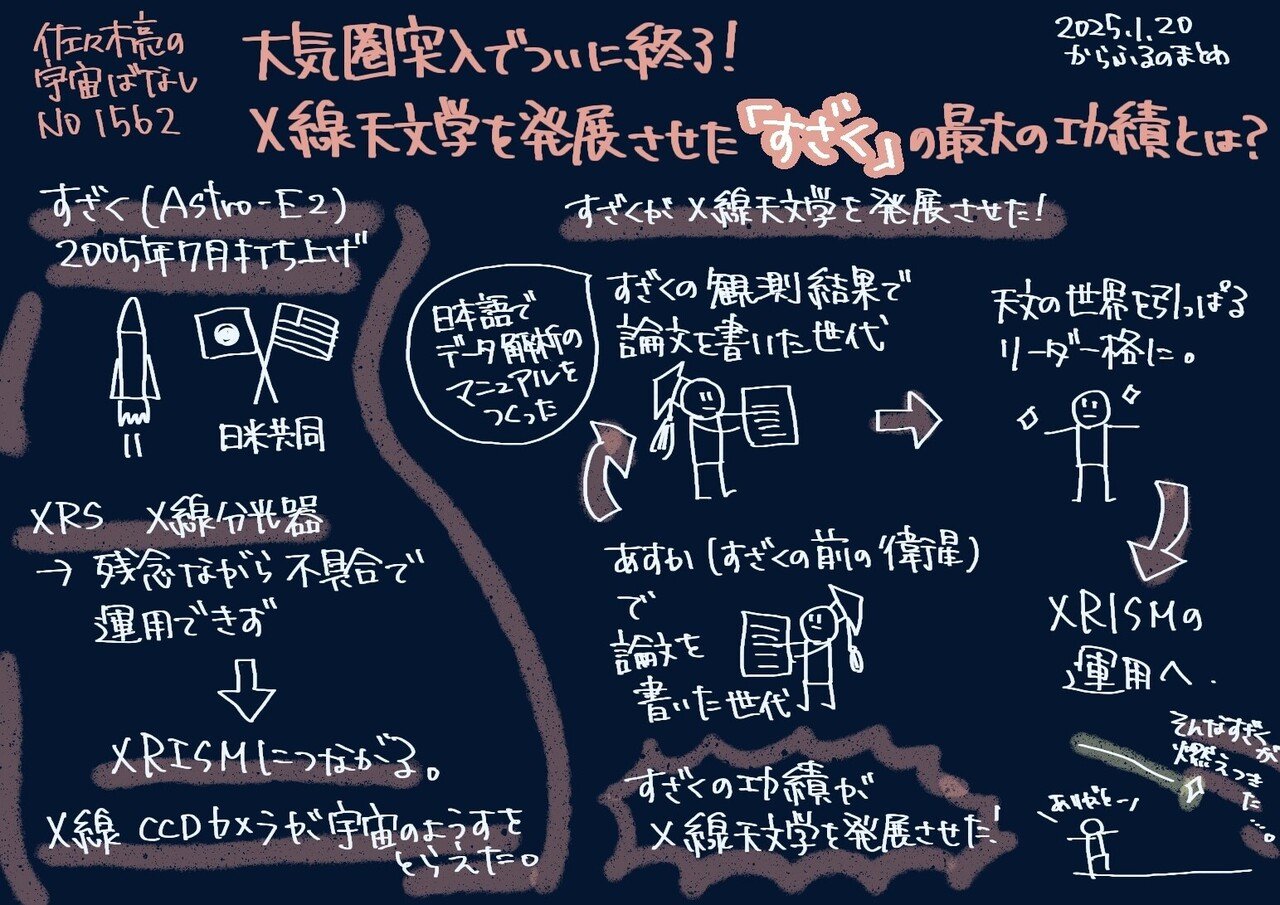 佐々木亮の
宇宙ばなし
No 1562
大気圏突入でついに終了!
X線天文学を発展させた「すざく」の最大の功績とは?
2025.1.20
からふるのまとめ
すざく(Astro-E2)
2005年7月打ち上げ
日米共同
XRS X線分光器
→ 残念ながら不具合で
運用できず
XRISMにつながる。
X線CCDカメラが宇宙のようすを
とらえた。
すざくがX線天文学を発展させた!
日本語で
データ解析の
マニュアルを
つくった
すざくの観測結果で
論文を書いた世代
天文の世界を引っぱる
リーダー格に。
あすか(すざくの前の衛星)
で
論文を
書いた世代
XRISMの
運用へ.
すざくの功績が
X線天文学を発展させた!
そんなすざくが
燃えつきた…。
ありがとーっ